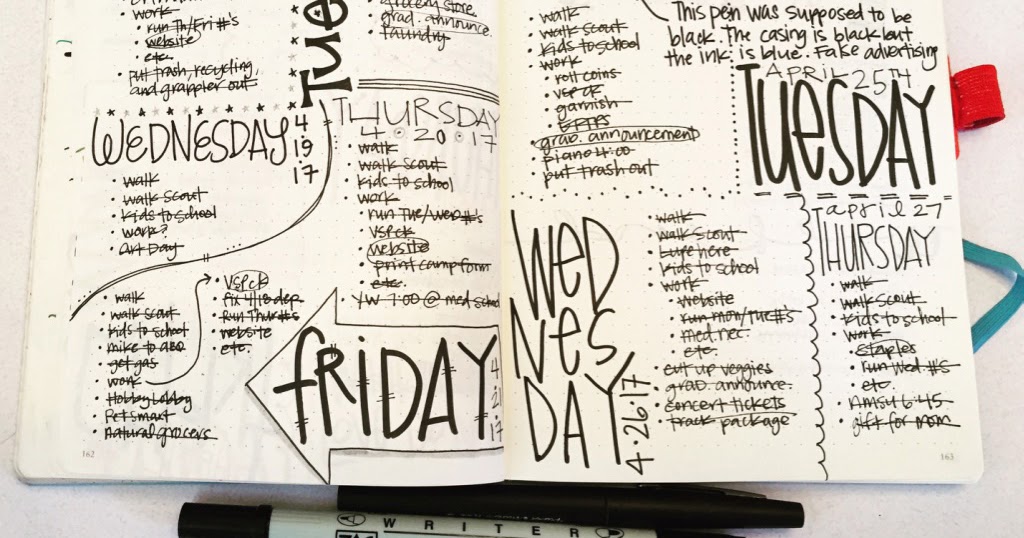 work
run Th/Fri #'s
website
etc.
put trash, recycling,
and grappler out
Tue
grocery store
grad. announce.
laundry
WEDNESDAY
4
19
17
walk
walk scout
kids to school
work?
Art Day
walk
walk scout
kids to school
mike to ABQ
get gas
work
Hobby Lobby
Petsmart
natural grocers
VSPCK
fix 4/18 dep.
Run Thur #'s
website
etc.
THURSDAY
4 · 20 · 17
walk
walk scout
kids to school
work
run Tue/Wed #'s
VSPCK
website
print camp form
etc.
YW 7:00 @ med school
FRIDAY
4
2
17
162
walk
walk scout
kids to school
work
roll coins
VSPCK
garnish
grad. announcement
piano 4:00
put trash out
This pen was supposed to be
black. The casing is black but
the ink is blue. Fake advertising
APRIL 25TH
TUESDAY
WED
NES
DAY
4·26·17
walk
walk scout
Lupe here
kids to school
work
website
run mon/tue #'s
med. rec.
etc.
cut up veggies
grad. announce.
concert tickets
track package
april 27
THURSDAY
walk
walk scout
kids to school
work
staples
run Wed. #'s
etc.
6:45
gift for mom
163
WRITER